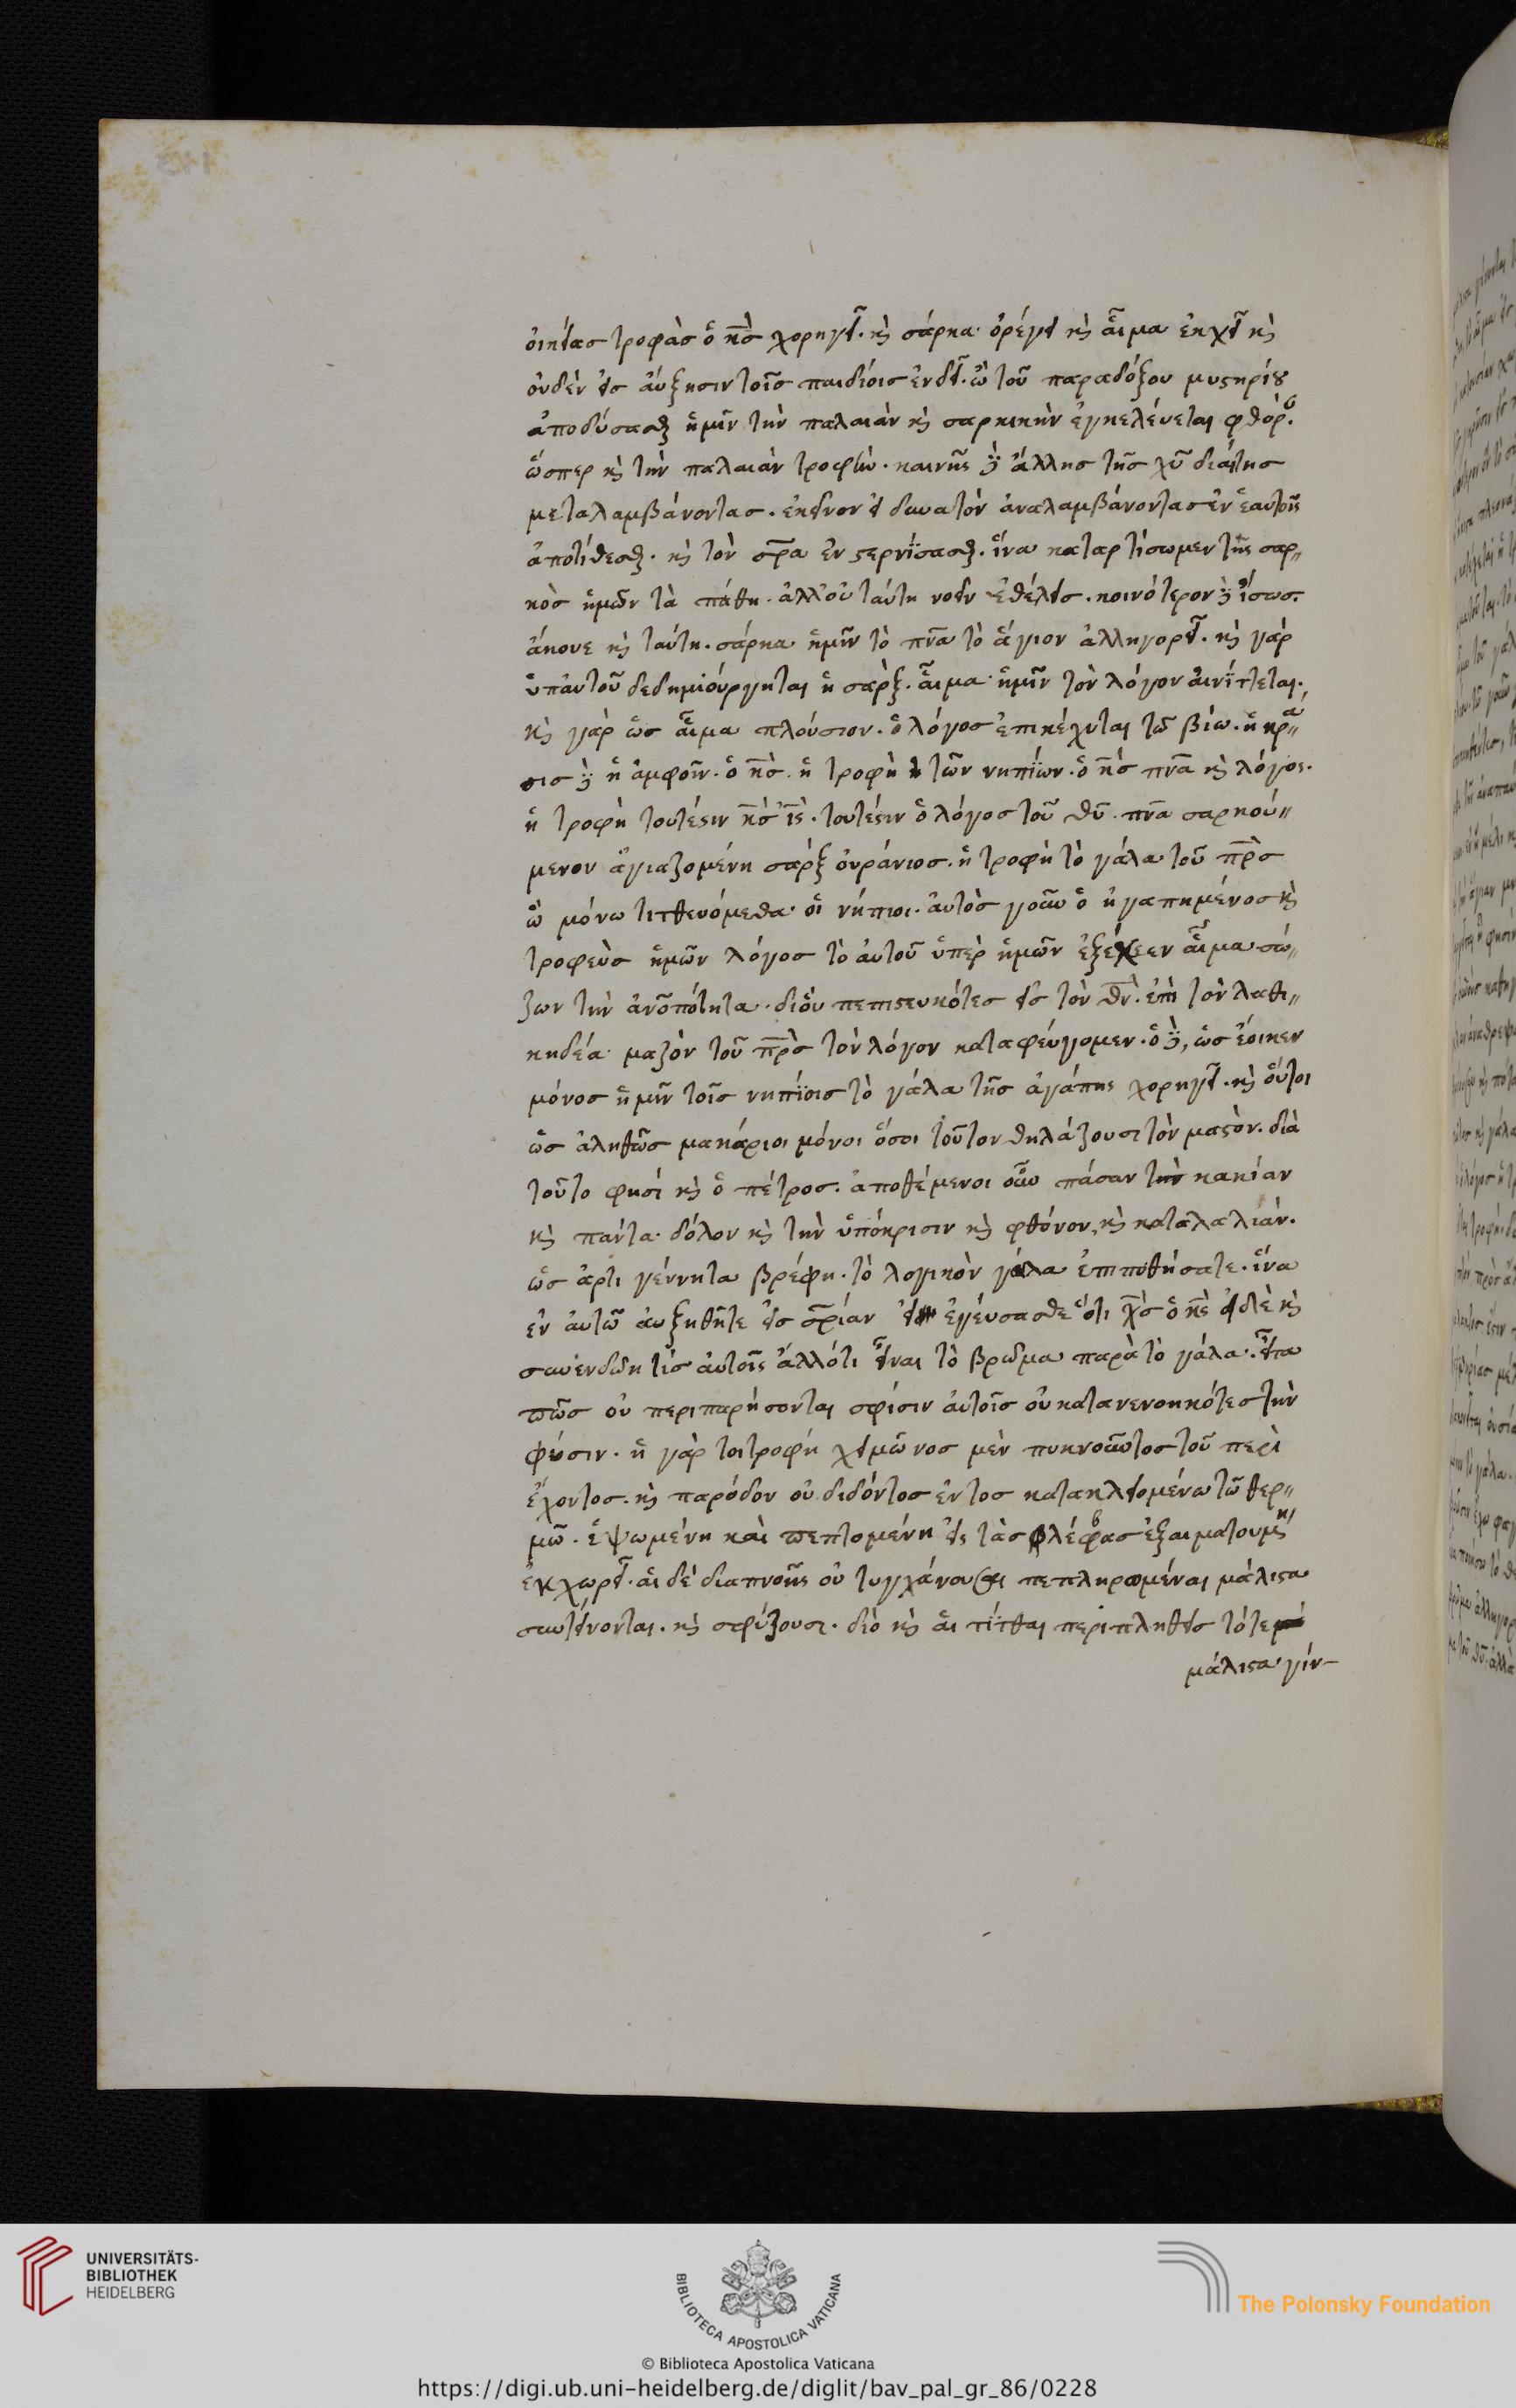 οἰκείας τροφὰς ὁ κ̅ς̅ χορηγεῖ. κὶ σάρκα ὀρέγει κὶ αἷμα ἐκχεῖ κὶ
οὐδὲν εἰς αὔξησιν τοῖς παιδίοις ἐνδεῖ. ὢ τοῦ παραδόξου μυστηρίου
ἀποδύσασθαι ἡμῖν τὴν παλαιὰν κὶ σαρκικὴν ἐγκελεύεται φθορ.
ὥσπερ κὶ τὴν παλαιὰν τροφὴν. καινῆς δὲ ἄλλης τῆς χ̅υ̅ διαίτης
μεταλαμβάνοντας. ἐκεῖνον εἰ δυνατόν ἀναλαμβάνοντας ἐν ἑαυτοῖς
ἀποτίθεσθαι. κὶ τὸν σ̅ρ̅α̅ ἐνστερνίσασθαι. ἵνα καταρτίσωμεν τῆς σαρ〃
κὸς ἡμῶν τὰ πάθη. ἀλλ' οὐ ταύτη νοεῖν ἐθέλεις. κοινότερον δὲ ἴσως.
ἄκουε κὶ ταύτη. σάρκα ἡμῖν τὸ π̅ν̅α̅ τὸ ἅγιον ἀλληγορεῖ. κὶ γὰρ
ὑπ' αὐτοῦ δεδημιούργηται ἡ σάρξ. αἷμα ἡμῖν τὸν λόγον αἰνίττεται.
κὶ γὰρ ὡς αἷμα πλούσιον. ὁ λόγος ἐπικέχυται τῶ βίω. ἡ κρᾶ〃
σις δὲ ἡ ἀμφοῖν. ὁ κ̅ς̅. ἡ τροφὴ τῶν νηπίων. ὁ κ̅ς̅ π̅ν̅α̅ κὶ λόγος.
ἡ τροφὴ τουτέστιν κ̅ς̅ ι̅ς̅. τουτέστιν ὁ λόγος τοῦ θ̅υ̅. π̅ν̅α̅ σαρκού〃
μενον ἁγιαζομένη σάρξ οὐράνιος. ἡ τροφὴ τὸ γάλα τοῦ π̅ρ̅ς̅
ὧ μόνω τιτθευόμεθα οἱ νήπιοι. αὐτὸς γοῦν ὁ ἠγαπημένος κὶ
τροφεὺς ἡμῶν λόγος τὸ αὐτοῦ ὑπὲρ ἡμῶν ἐξέχεεν αἷμα σώ〃
ζων τὴν ἀν̅ο̅πότητα. δι' οὗ πεπιστευκότες εἰς τὸν θ̅ν̅. ἐπὶ τὸν λαθι〃
κηδέα μαζὸν τοῦ π̅ρ̅ς̅ τὸν λόγον καταφεύγομεν. ὁ δὲ, ὡς ἔοικεν
μόνος ἡμῖν τοῖς νηπίοις τὸ γάλα τῆς ἀγάπης χορηγεῖ. κὶ οὗτοι
ὡς ἀληθῶς μακάριοι μόνοι ὅσοι τοῦτον θηλάζουσι τὸν μαστὸν. διὰ
τοῦτο φησί κὶ ὁ πέτρος. ἀποθέμενοι οὖν πάσαν τὴν κακίαν
κὶ πάντα δόλον κὶ τὴν ὑπόκρισιν κὶ φθόνον, κὶ καταλαλιάν.
ὡς ἀρτι γέννητα βρέφη. τὸ λογικὸν γάλα ἐπιποθήσατε. ἵνα
ἐν αὐτῶ αὐξηθῆτε εἰς σ̅ρ̅ίαν εἰ ἐγεύσασθε ὅτι χ̅ς̅ ὁ κ̅ς̅ εἰ δὲ κὶ
συνενδώη τίς αὐτοῖς ἄλλό τι εἶναι τὸ βρῶμα παρὰ τὸ γάλα. εἶτα
πῶς οὐ περιπαρήσονται σφίσιν αὐτοῖς οὐ κατανενοηκότες τὴν
φύσιν. ἡ γάρ τοι τροφή χειμῶνος μὲν πυκνοῦντος τοῦ περὶ
έχοντος. κὶ παρόδον οὐ διδόντος ἐντος κατακλειομένω τῶ θερ〃
μῶ. ἑψωμένη καὶ πεπτομένη εἰς τὰς φλέβας ἐξαιματουμένη
ἐκχωρεῖ. αἱ δὲ διαπνοῆς οὐ τυγχάνουσαι πεπληρωμέναι μάλιστα
συντείνονται. κὶ σφύζουσι. διὸ κὶ αἱ τίτθαι περιπληθεῖς τότε
μάλιστα γίν-
UNIVERSITÄTS-
BIBLIOTHEK
HEIDELBERG
BIBLIOTECA APOSTOLICA VATICANA
The Polonsky Foundation
© Biblioteca Apostolica Vaticana
https://digi.ub.uni-heidelberg.de/diglit/bav_pal_gr_86/0228